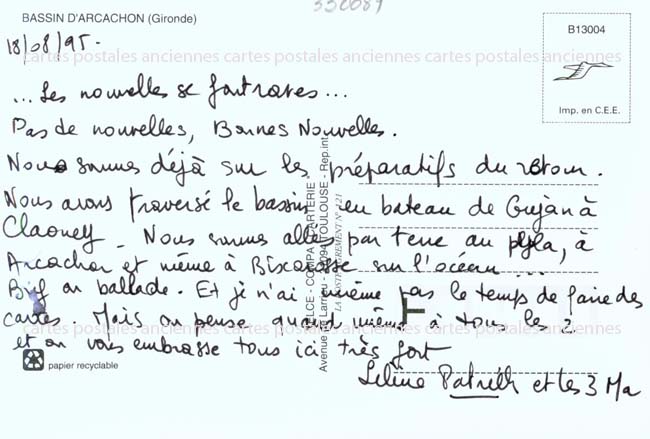 330089
BASSIN D'ARCACHON (Gironde)
B13004
Imp. en C.E.E.
18/08/95.
cartes postales anciennes cartes postales anciennes cartes postales anciennes
... Les nouvelles se font rares ...
Pas de nouvelles, Bonnes Nouvelles.
Nous sommes déjà sur les préparatifs du retour.
Nous avons traversé le bassin en bateau de Gujan à
Claouey _ Nous sommes allés par terre au pyla, à
Arcachon et même à Biscarosse sur l'océan ...
Bref on ballade. Et je n'ai même pas le temps de faire des
cartes Mais on pense quand même à tous les 2
et on vous embrasse tous ici très fort
Patrick et les 3 Ma
cartes postales anciennes cartes postales anciennes cartes postales anciennes
papier recyclable
ELCE - COMPA CARTERIE
Avenue Larrieu 094 TOULOUSE - Rep.int